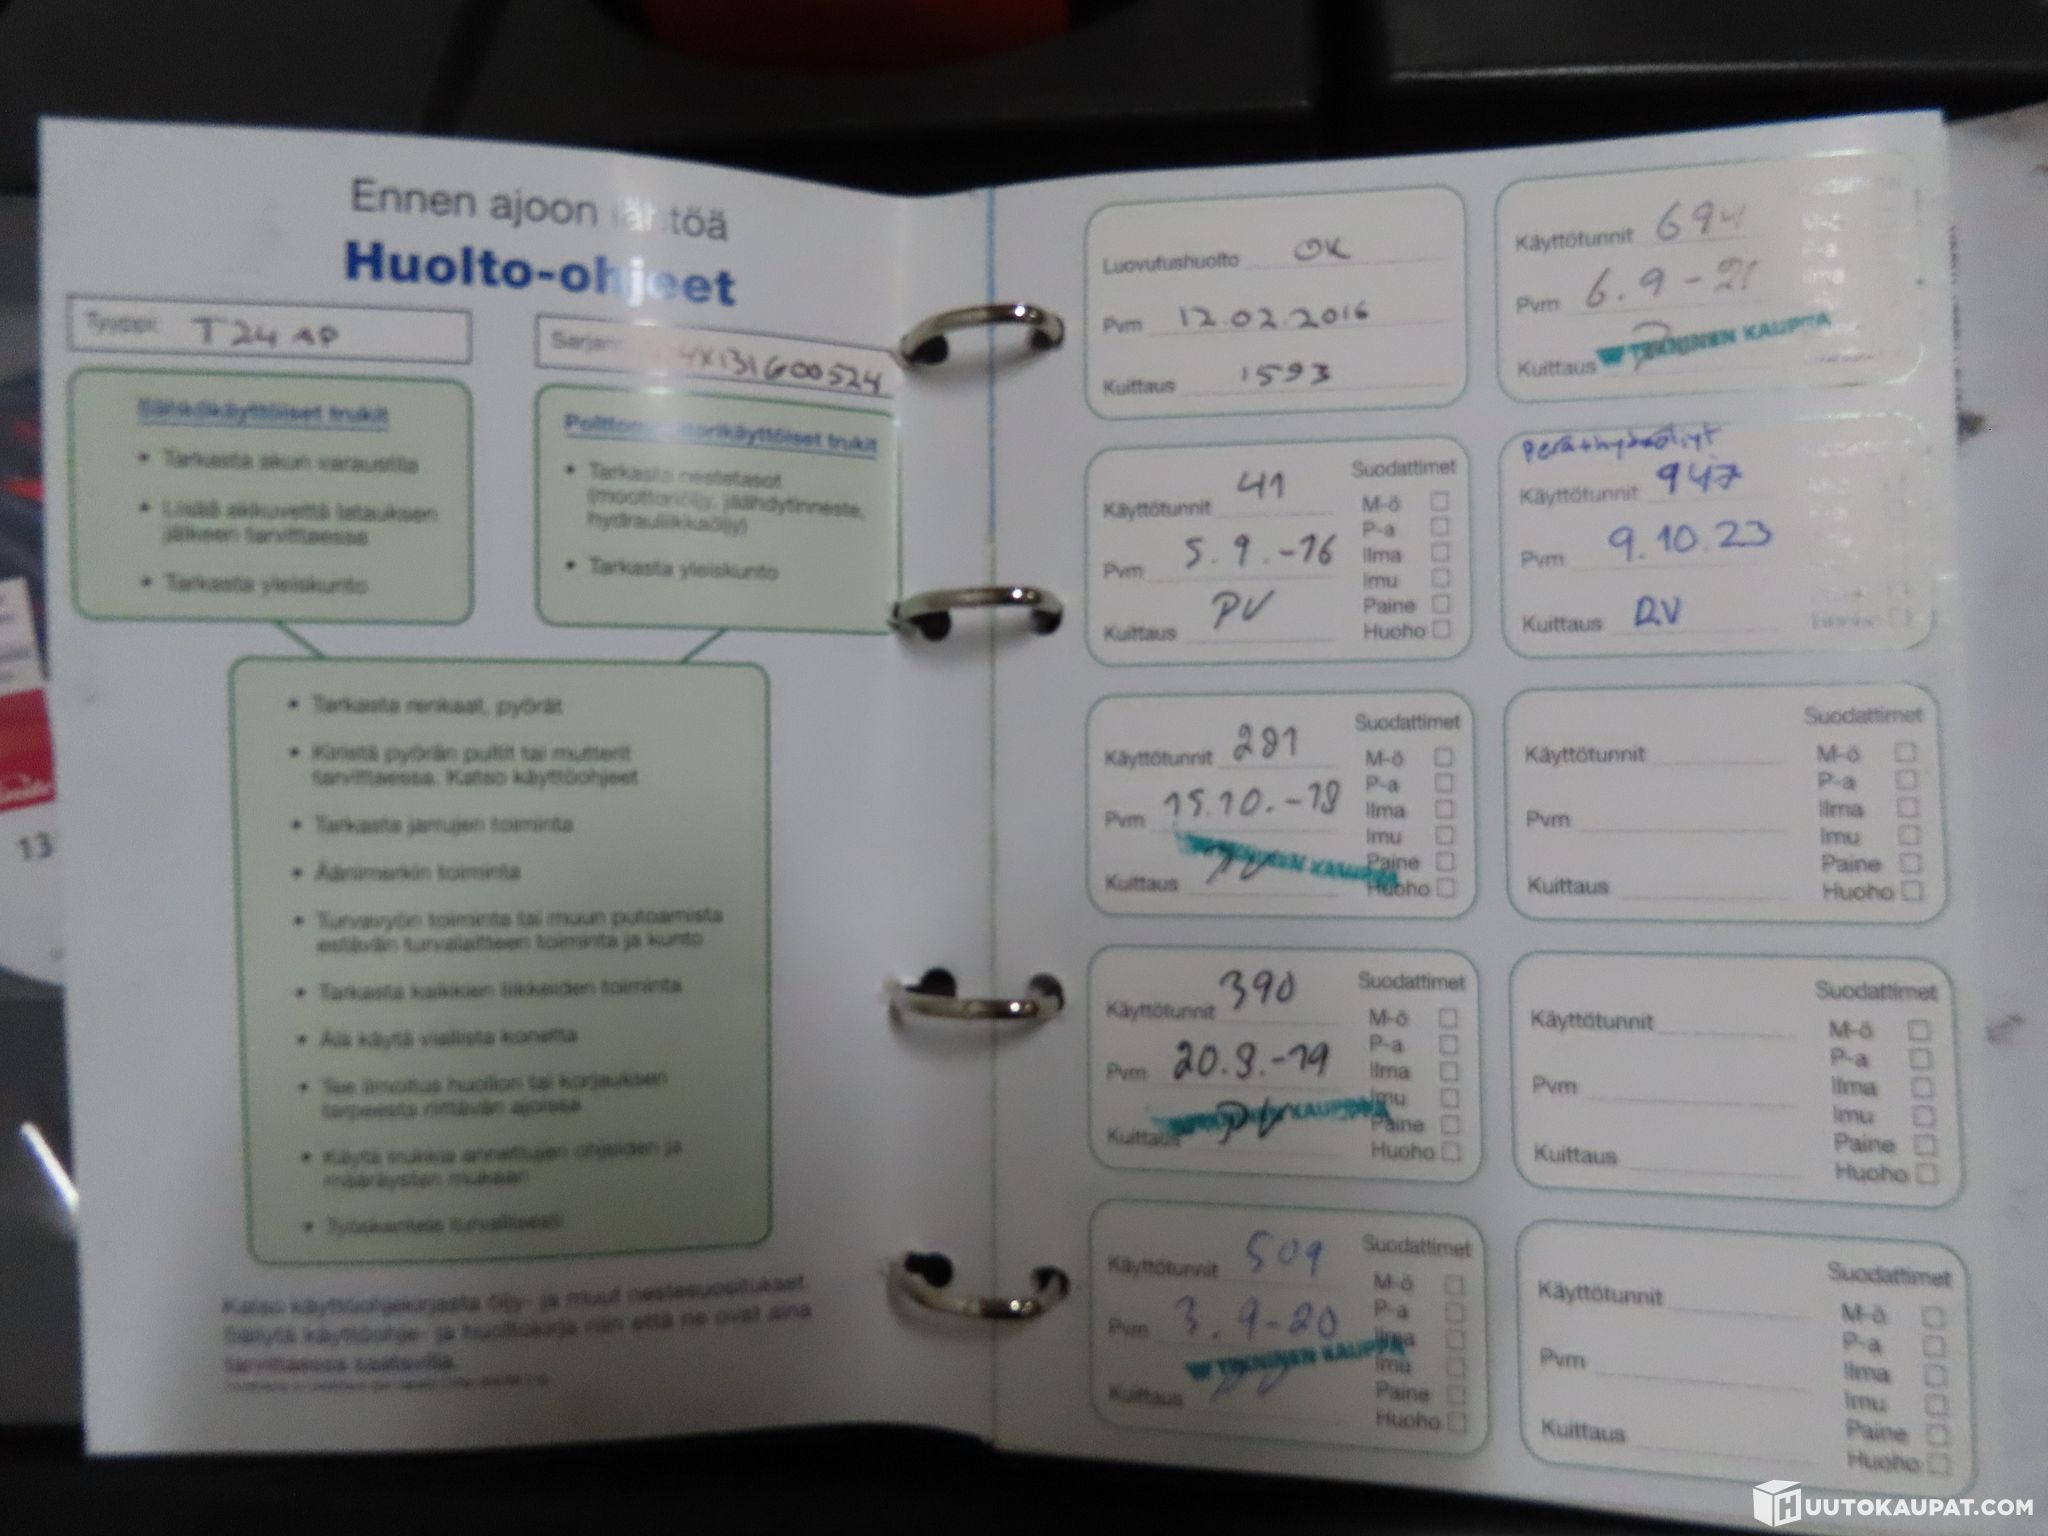 Ennen ajoon lähtöä
Huolto-ohjeet
Tyyppi: T24 AP
4X131G00524
Sähkökäyttöiset trukit
• Tarkasta akun varaustila
• Lisää akkuvettä latauksen
jälkeen tarvittaessa
• Tarkasta yleiskunto
Polttomoottorikäyttöiset trukit
• Tarkasta nestetasot
(moottoriöljy, jäähdytinneste,
hydrauliikkaöljy)
• Tarkasta yleiskunto
• Tarkasta renkaat, pyörät
• Kiristä pyörän pultit tai mutterit
tarvittaessa. Katso käyttöohjeet
• Tarkasta jarrujen toiminta
• Äänimerkin toiminta
• Turvavyön toiminta tai muun putoamista
estävän turvalaitteen toiminta ja kunto
• Tarkasta kaikkien liikkeiden toiminta
• Älä käytä viallista konetta
• Tee ilmoitus huollon tai korjauksen
tarpeesta riittävän ajoissa
• Käytä trukkia annettujen ohjeiden ja
määräysten mukaan
• Työskentele turvallisesti
Katso käyttöohjekirjasta öljy- ja muut nestesuositukset.
Säilytä käyttöohje- ja huoltokirja niin että ne ovat aina
tarvittaessa saatavilla.
Luovutushuolto OK
Pvm 12.02.2016
Kuittaus 1593
Käyttötunnit 41
Pvm 5.9.-16
Kuittaus PV
Suodattimet
M-ö
P-a
Ilma
Imu
Paine
Huoho
Käyttötunnit 281
Pvm 15.10.-18
Kuittaus PV
TEKNINEN KAUPPA
Suodattimet
M-ö
P-a
Ilma
Imu
Paine
Huoho
Käyttötunnit 390
Pvm 20.9.-19
Kuittaus PV
TEKNINEN KAUPPA
Suodattimet
M-ö
P-a
Ilma
Imu
Paine
Huoho
Käyttötunnit 509
Pvm 3.9-20
Kuittaus
TEKNINEN KAUPPA
Suodattimet
M-ö
P-a
Ilma
Imu
Paine
Huoho
Käyttötunnit 694
Pvm 6.9-21
Kuittaus
TEKNINEN KAUPPA
Perä+hydröljyt
Käyttötunnit 947
Pvm 9.10.23
Kuittaus RV
Huoho
Käyttötunnit
Pvm
Kuittaus
Suodattimet
M-ö
P-a
Ilma
Imu
Paine
Huoho
Käyttötunnit
Pvm
Kuittaus
Suodattimet
M-ö
P-a
Ilma
Imu
Paine
Huoho
Käyttötunnit
Pvm
Kuittaus
Suodattimet
M-ö
P-a
Ilma
Imu
Paine
Huoho
13
HUUTOKAUPAT.COM